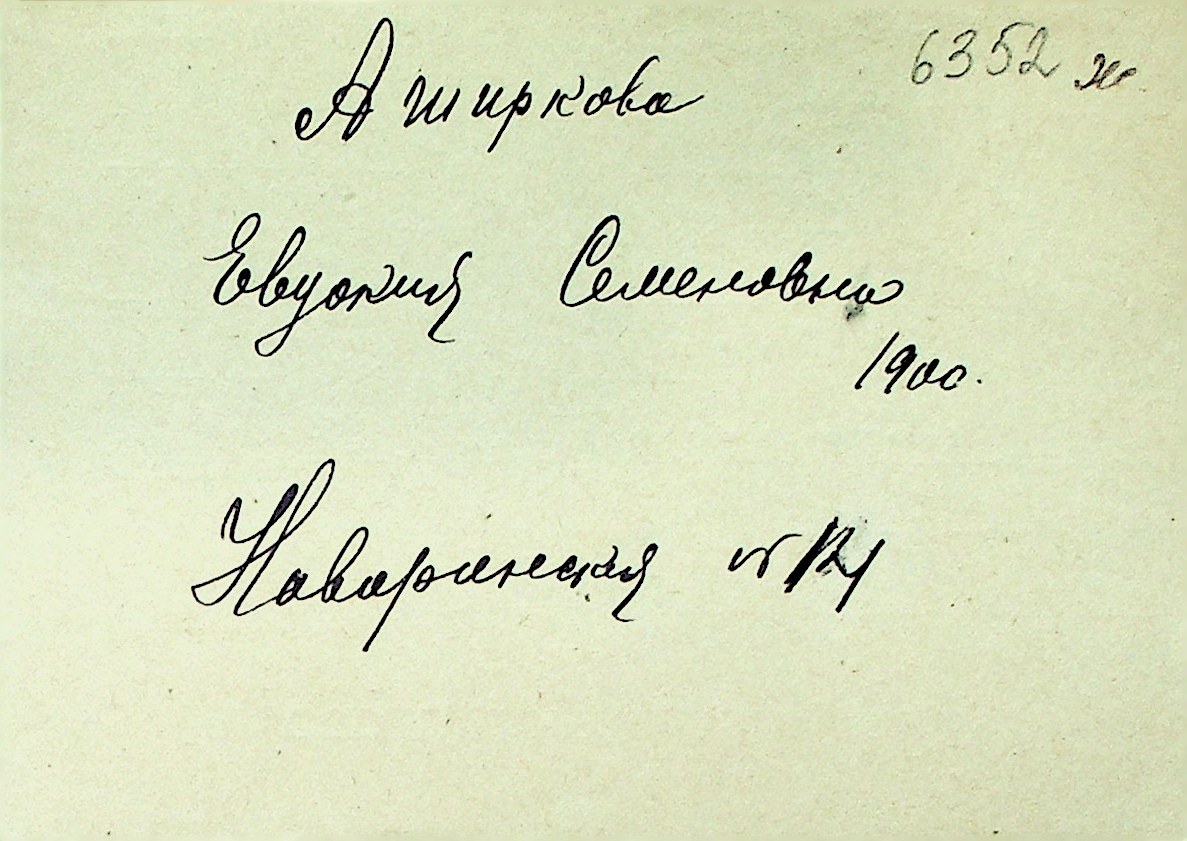 6352 ж.
Аширкова
Евдокия Семеновна
1900.
Наваринская